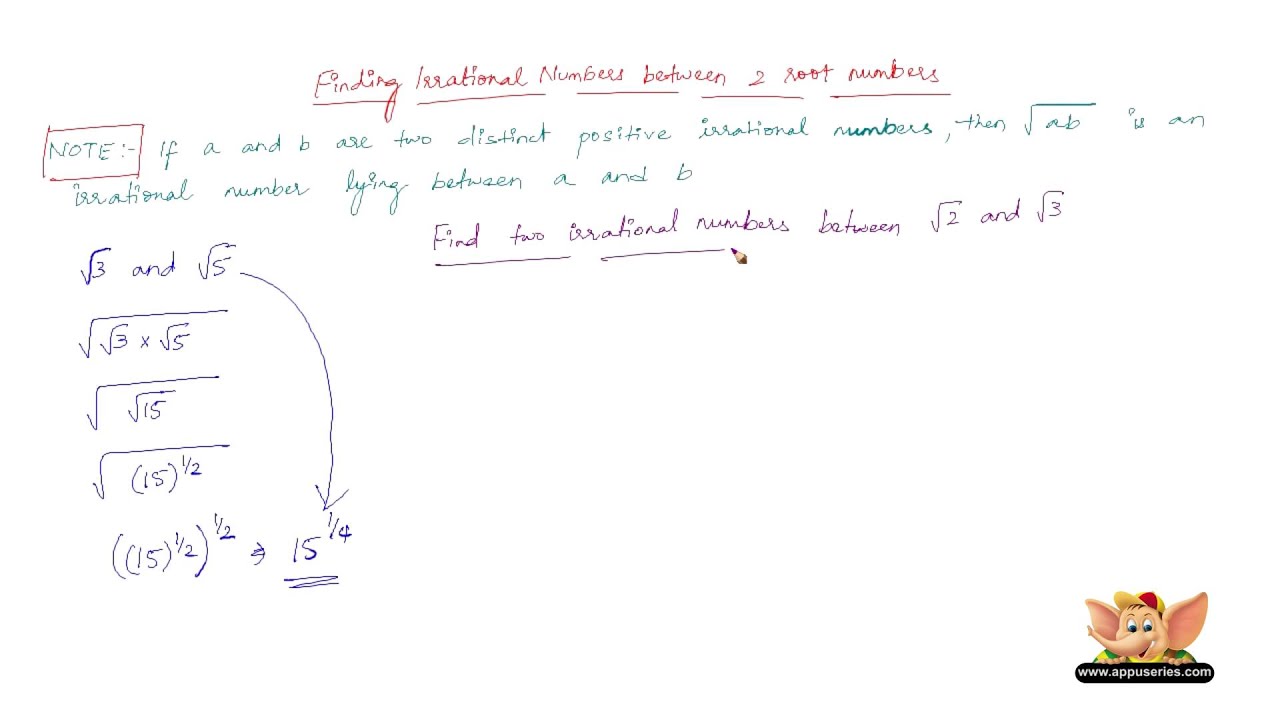 Finding Irrational Numbers between 2 root numbers
NOTE:- If a and b are two distinct positive irrational numbers, then √ab is an
irrational number lying between a and b
Find two irrational numbers between √2 and √3
√3 and √5
√(√3 × √5)
√(√15)
√((15)^1/2)
((15)^1/2)^1/2 ⇒ 15^1/4
www.appuseries.com